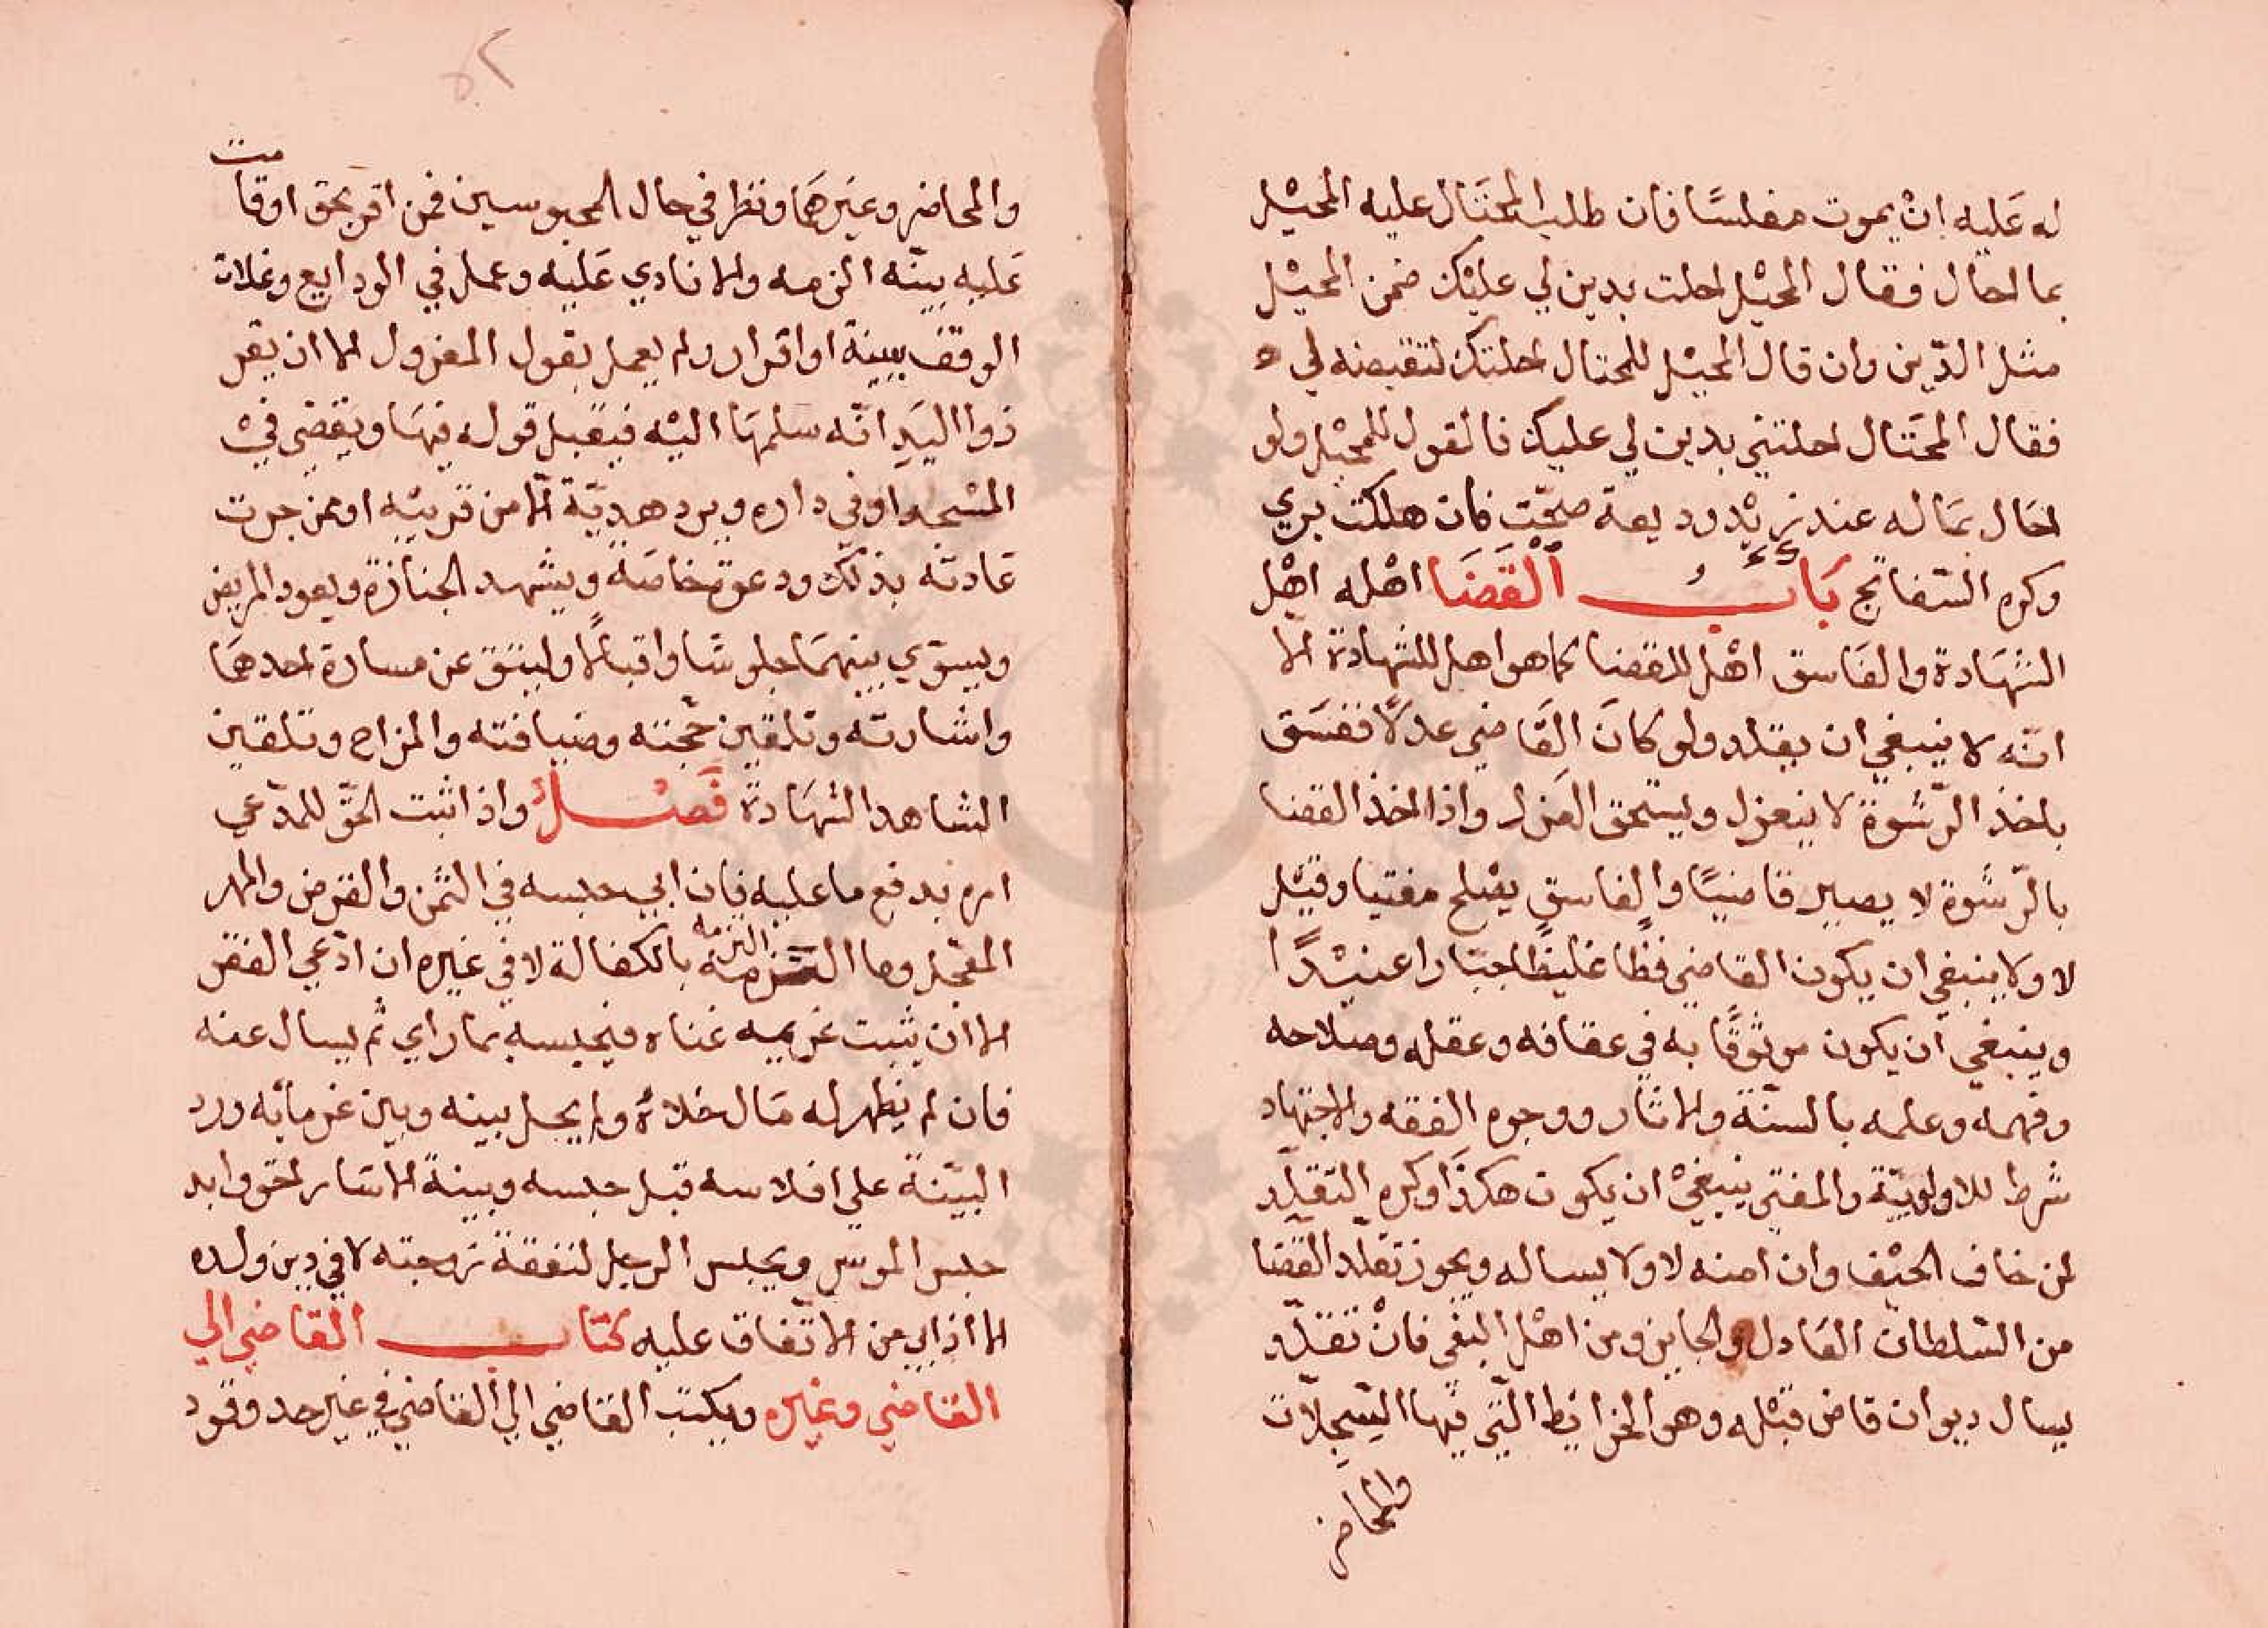 له عَليه انْ يموت مفلسًا فان طلب المحتَال عليه المحيْل
بما احال فقال المحيْل احلت بدين لي عليْك ضمن المحيْل
مثل الدّين وان قال المحيْل للمحتال احلتك لتقبضه لي
فقال المحتَال احلتني بدين لي عليك فالقول للمحيْل ولو
احَال بمَاله عند زيْد وديعة صحّت فان هلكت بري
وكره السّفاتج بَابُ اَلْقَضَا اهْله اهْل
الشّهَادة والفَاسق اهْل للقضا كما هو اهل للشّهادة الّا
انّه لا ينبغي ان يقلد ولو كانَ القَاضي عدلًا ففسَق
باخذ الرّشوة لا ينعزل ويستحق العَزل واذا اخذ القضا
بالرّشوة لا يصير قاضيًا والفاسق يصْلح مفتيا وقيْل
لا ولا ينبغي ان يكون القاضي فظًا غليظًا جبّارا عنيْدًا
وينبغي ان يكون موثوقًا به في عفافه وعقله وصلاحه
وفهمه وعلمه بالسنّة والاثار ووجوه الفقه والاجتهاد
شرط للاولويّة والمفتي ينبغيْ ان يكون هكذَا وكره التّقلّد
لمن خاف الحيْف وان امنه لا ولا يساله ويجوز تقلّد القضا
من السّلطان العَادل والجاير ومن اهْل البغي فانْ تقلّد
يسال ديوان قاض قبْله وهو الخرائط التّي فيها السّجلّات
والمحاضر
والمحاضر وغيَرهَا ونظر في حال المحبوسين فمن اقر بحق او قامت
عَليه بيّنه الزمه والا نادي عَليه وعمل في الودايع وغلات
الوقف ببينة او اقرار ولم يعمل بقول المعزول الا ان يقر
ذوا اليَدِ انّه سلمهَا اليْه فيقبل قوله فيهَا ويقضي فيْ
المسْجد او في داره ويرد هديّة الّا من قريبْه او ممن جرت
عَادته بذلك ودعوة خاصَة ويشهد الجنازة ويعود المريض
ويسوّي بينهمَا جلوسًا واقبالًا وليتق عن مسارة احدهمَا
واشارته وتلقين حجّته وضيافته والمزاح وتلقين
الشاهد الشهَادة فَصْلٌ واذا ثبت الحقّ للمدّعي
امره بدفع ما عليه فان ابي حبسه في الثمن والقرض والمهر
المعجّل وما التزمه بالكفالة لا في غيره ان ادّعي الفقر
الا ان يثبت غريمه غناه فيحبسه بما راي ثم يسال عنه
فان لم يظهر له مَال خلاهُ ولم يحل بينه وبين غرمائه ورد
البيّنة علي افلاسه قبل حبسه وبينة اليسَار احق وابد
حبس الموسر ويحبس الرجل لنفقة زوجته لا في دين ولده
الا اذا ابي من الانفاق عليه كتاب القاضي الي
القاضي وغيره ويكتب القاضي الي القاضي في غير حد وقود